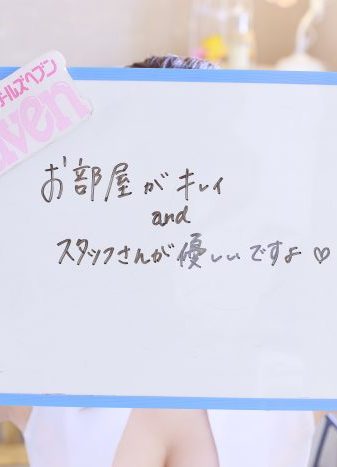 ールズヘブン
ven
お部屋がキレイ
and
スタッフさんが優しいですよ♡